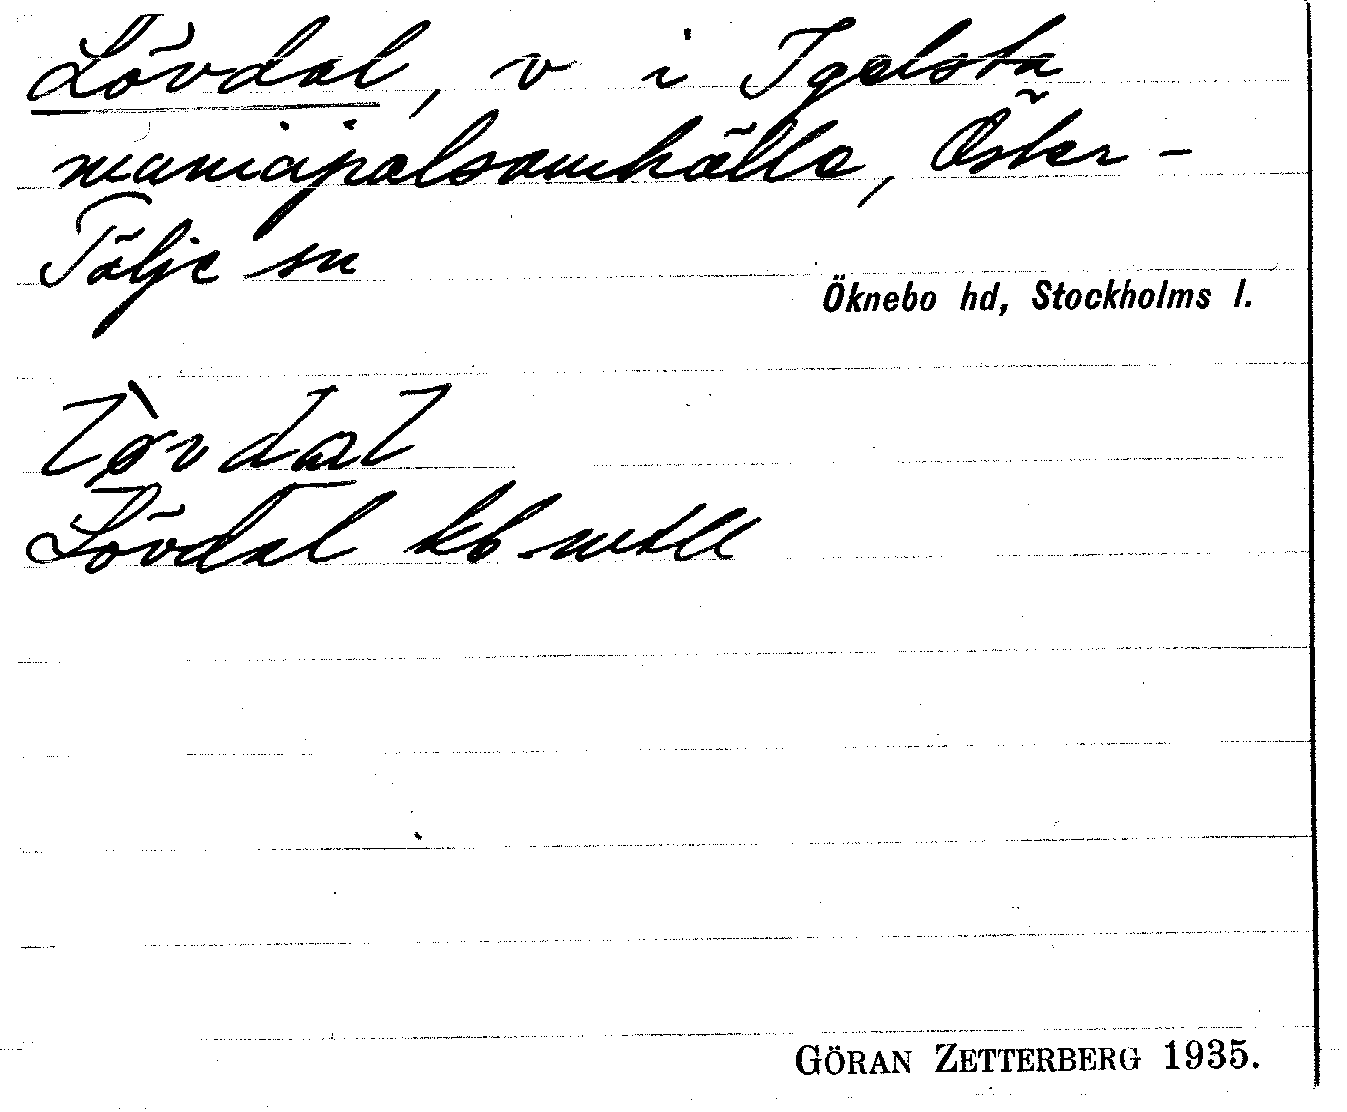 Lövdal, v i Igelsta
municipalsamhälle, Öster-
Tälje sn
Öknebo hd, Stockholms l.
lòvdal
Lövdal kb mtll
GÖRAN ZETTERBERG 1935.